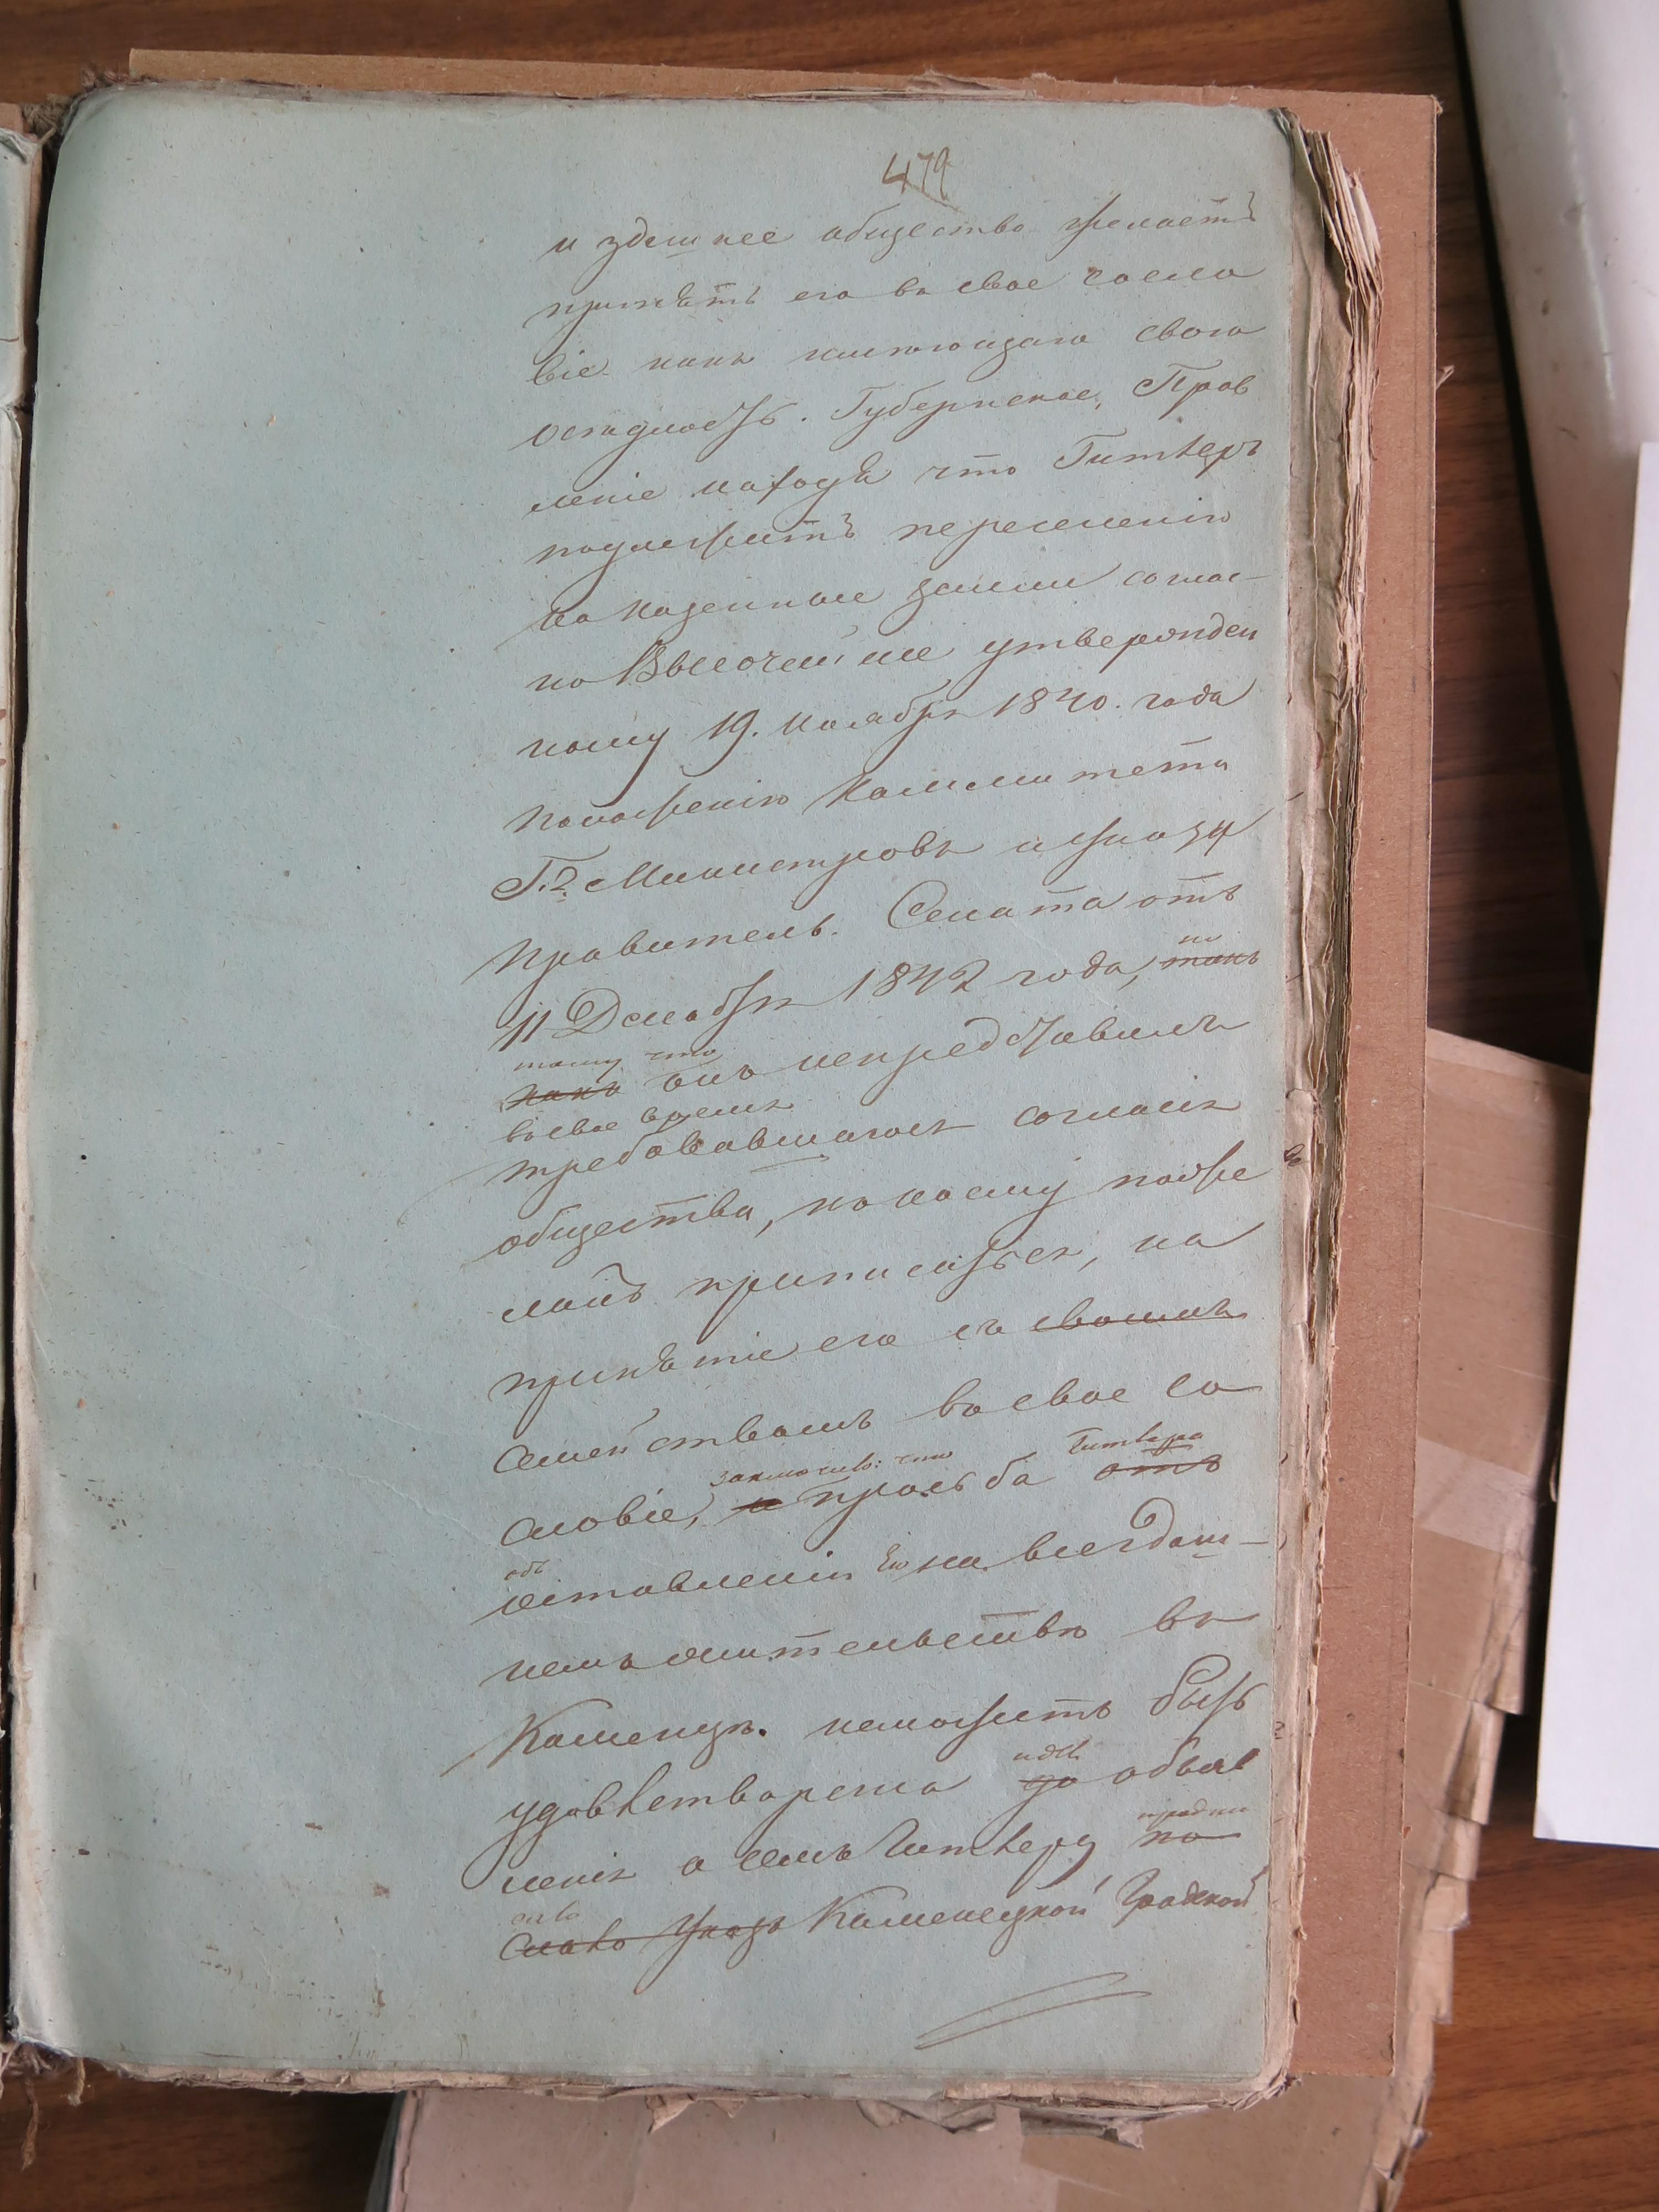 479
и здешнее общество желаетъ
принять его въ свое сосло
віе какъ имѣющаго свою
осѣдлость. Губернское Прав
леніе находя что Гитнеръ
подлежитъ переселенію
на казенные земли соглас-
но Высочайше утвержден
ному 19. Ноября 1840. года
положенію Коммитета
Г.г. Министровъ и указу
Правитель. Сената отъ
11 Декабря 1842 года, такъ по
какъ тому что онъ непредставилъ
во свое время
требовавшагося согласія
общества, къ коему поже
лаетъ приписаться, на
принятіе его съ своимъ
Семействомъ въ свое со
словіе, и заключило: что просьба отъ Гитнера
объ оставленіи его на всегдаш-
немъ жительствѣ въ
Каменцѣ. неможетъ быть
удовлетворена до объяв
ленія о семъ Гитнеру по предпи
сано Слать Указъ Каменецкой Градской